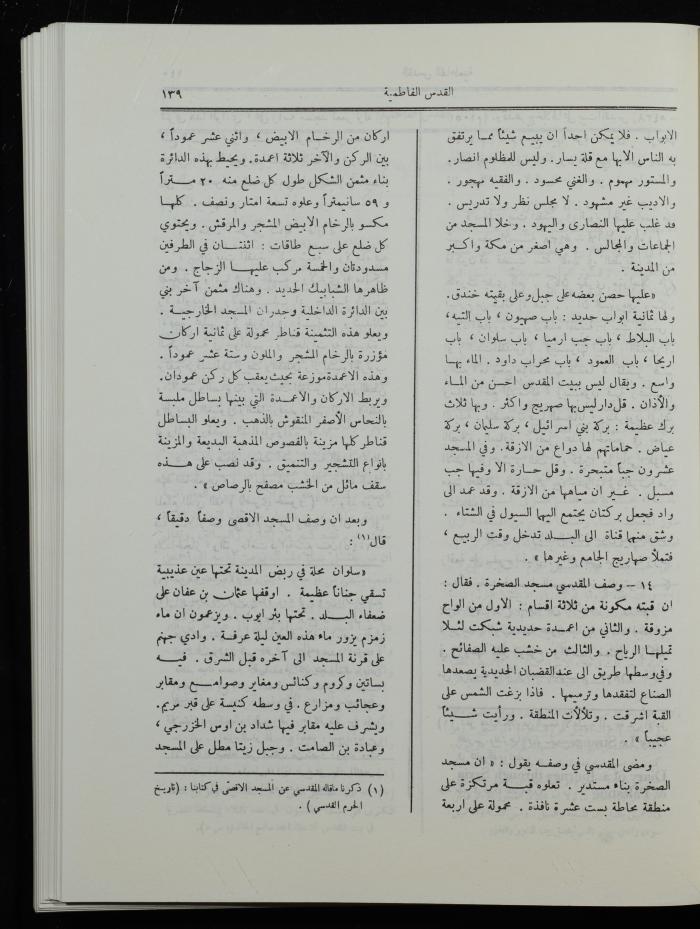 القدس الفاطمية
١٣٩
الابواب . فلا يمكن احداً ان يبيع شيئاً مما يرتفق
به الناس الا بها مع قلة يسار . وليس للمظلوم انصار .
والمستور مهموم . والغني محسود . والفقيه مهجور .
والاديب غير مشهود . لا مجلس نظر ولا تدريس .
قد غلب عليها النصارى واليهود . وخلا المسجد من
الجماعات والمجالس . وهي اصغر من مكة واكبر
من المدينة .
«عليها حصن بعضه على جبل وعلى بقيته خندق.
ولها ثمانية ابواب حديد : باب صهيون ، باب التيه،
باب البلاط ، باب جب ارميا ، باب سلوان ، باب
اريحا ، باب العمود ، باب محراب داود . الماء بها
واسع . ويقال ليس ببيت المقدس احسن من الماء
والأذان . قل دار ليس بها صهريج واكثر . وبها ثلاث
برك عظيمة : بركة بني اسرائيل ، بركة سليمان ، بركة
عياض . حماماتهم لها دواع من الازقة. وفي المسجد
عشرون جباً متبحرة . وقل حارة الا وفيها جب
مسبل . غير ان مياهها من الازقة . وقد عمد الى
واد فجعل بركتان يجتمع اليها السيول في الشتاء .
وشق منهما قناة الى البلد تدخل وقت الربيع ،
فتملأ صهاريج الجامع وغيرها » .
١٤ – وصف المقدسي مسجد الصخرة . فقال :
ان قبته مكونة من ثلاثة اقسام : الاول من الواح
مزوقة . والثاني من اعمدة حديدية شبكت لئلا
تميلها الرياح . والثالث من خشب عليه الصفائح .
وفي وسطها طريق الى عند القضبان الحديدية يصعدها
الصناع لتفقدها وترميمها . فاذا بزغت الشمس على
القبة اشرقت . وتلألأت المنطقة . ورأيت شيئاً
عجيباً » .
ومضى المقدسي في وصفه يقول : « ان مسجد
الصخرة بناء مستدير . تعلوه قبة مرتكزة على
منطقة محاطة بست عشرة نافذة . محمولة على اربعة
اركان من الرخام الابيض ، واثني عشر عموداً ،
بين الركن والآخر ثلاثة اعمدة. ويحيط بهذه الدائرة
بناء مثمن الشكل طول كل ضلع منه ٢٠ متراً
و ٥٩ سانيمتراً وعلوه تسعة امتار ونصف . كلها
مكسو بالرخام الابيض المشجر والمرقش . ويحتوي
كل ضلع على سبع طاقات : اثنتان في الطرفين
مسدودتان والخمسة مركب عليها الزجاج . ومن
ظاهرها الشبابيك الحديد . وهناك مثمن آخر بني
بين الدائرة الداخلية وجدران المسجد الخارجية .
ويعلو هذه التثمينة قناطر محمولة على ثمانية اركان
مؤزرة بالرخام المشجر والملون وستة عشر عموداً .
وهذه الاعمدة موزعة بحيث يعقب كل ركن عمودان.
ويربط الاركان والاعمدة التي بينها بساطل ملبسة
بالنحاس الأصفر المنقوش بالذهب . ويعلو البساطل
قناطر كلها مزينة بالفصوص المذهبة البديعة والمزينة
بانواع التشجير والتنميق . وقد نصب على هذه
سقف مائل من الخشب مصفح بالرصاص » .
وبعد ان وصف المسجد الاقصى وصفاً دقيقاً ،
قال(١) :
«سلوان محلة في ربض المدينة تحتها عين عذيبية
تسقي جناناً عظيمة . اوقفها عثمان بن عفان على
ضعفاء البلد . تحتها بئر ايوب . ويزعمون ان ماء
زمزم يزور ماء هذه العين ليلة عرفة . وادي جهنم
على قرنة المسجد الى آخره قبل الشرق . فيه
بساتين وكروم وكنائس ومغاير وصوامع ومقابر
وعجائب ومزارع . في وسطه كنيسة على قبر مريم.
ويشرف عليه مقابر فيها شداد بن اوس الخزرجي ،
وعبادة بن الصامت . وجبل زيتا مطل على المسجد
(١) ذكرنا ماقاله المقدسي عن المسجد الاقصى في كتابنا : (تاريخ
الحرم القدسي) .